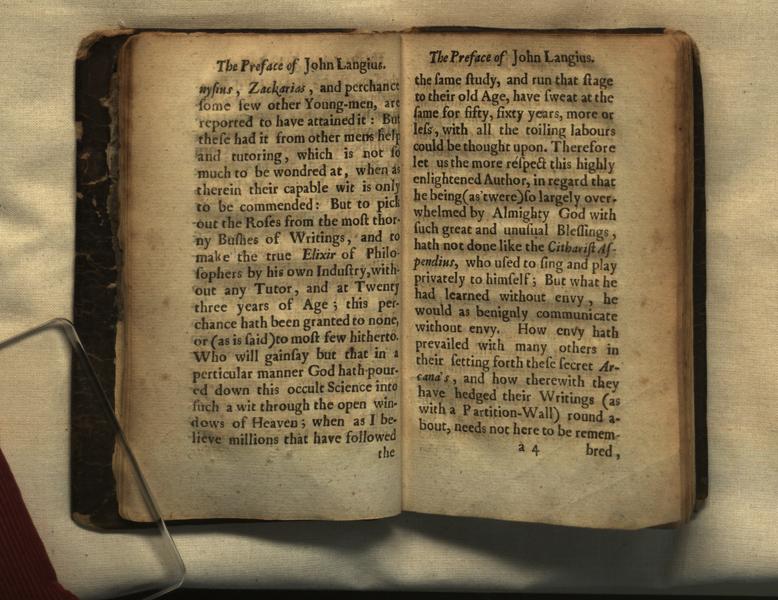 The Preface of John Langius.
nyſius, Zackarias, and perchance
ſome few other Young-men, are
reported to have attained it: But
theſe had it from other mens help
and tutoring, which is not ſo
much to be wondred at, when as
therein their capable wit is only
to be commended: But to pick
out the Roſes from the moſt thor-
ny Buſhes of Writings, and to
make the true Elixir of Philo-
ſophers by his own Induſtry, with-
out any Tutor, and at Twenty
three years of Age; this per-
chance hath been granted to none,
or (as is ſaid) to moſt few hitherto.
Who will gainſay but that in a
perticular manner God hath pour-
ed down this occult Science into
ſuch a wit through the open win-
dows of Heaven; when as I be-
lieve millions that have followed
the
The Preface of John Langius.
the ſame ſtudy, and run that ſtage
to their old Age, have ſweat at the
ſame for fifty, ſixty years, more or
leſs, with all the toiling labours
could be thought upon. Therefore
let us the more reſpect this highly
enlightened Author, in regard that
he being (as 'twere) ſo largely over-
whelmed by Almighty God with
ſuch great and unuſual Bleſſings,
hath not done like the Cithariſt Aſ-
pendius, who uſed to ſing and play
privately to himſelf; But what he
had learned without envy, he
would as benignly communicate
without envy. How envy hath
prevailed with many others in
their ſetting forth theſe ſecret Ar-
cana's, and how therewith they
have hedged their Writings (as
with a Partition-Wall) round a-
bout, needs not here to be remem-
a 4 bred,